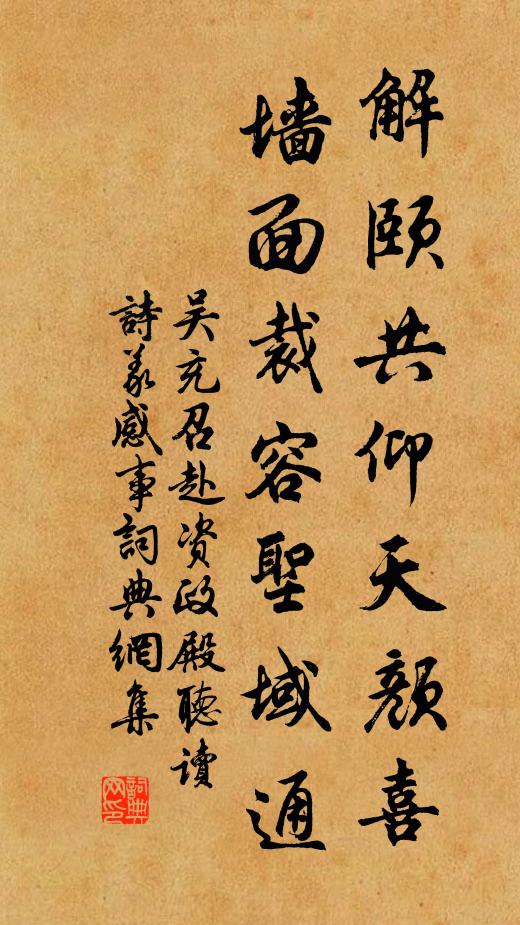 解頤共仰天顏喜
墙面裁容聖域通
吴充召赴资政殿聽讀
詩義感事詞典網集
詞典
网印